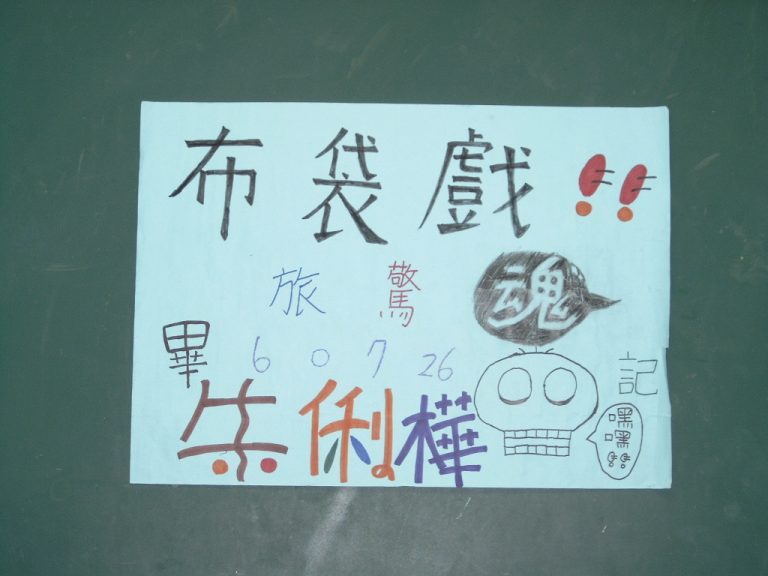 布袋戲!!
畢旅驚魂記
6 0 7 26
朱俐樺
嘿
嘿
!!